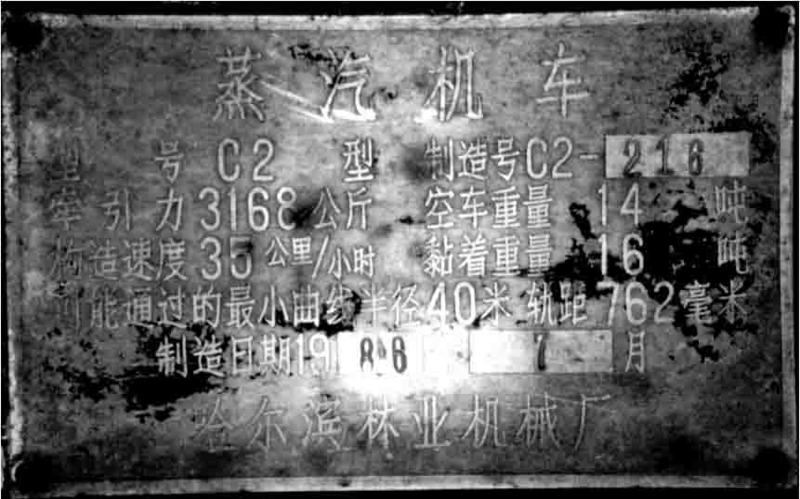 蒸汽机车
型号 C2 型 制造号C2-216
牵引力 3168 公斤 空车重量 14 吨
构造速度 35 公里/小时 黏着重量 16 吨
可能通过的最小曲线半径40米 轨距762毫米
制造日期1986 7月
哈尔滨林业机械厂